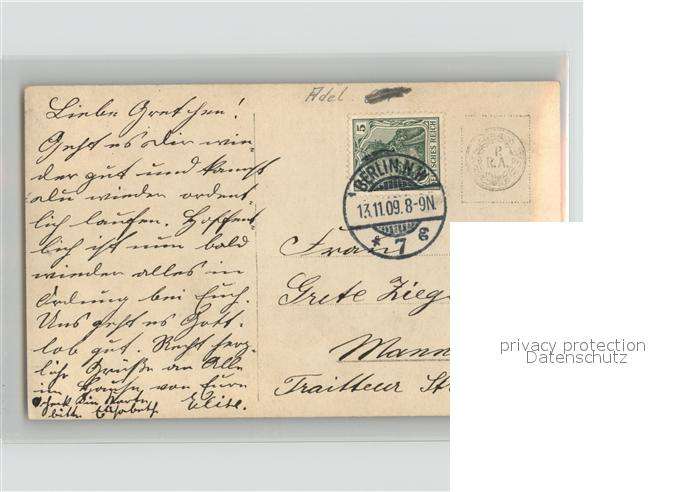 Adel.
Liebe Gretchen!
Geht es dir wie-
der gut und kannst
du wieder ordent-
lich laufen. Hoffent-
lich ist nun bald
wieder alles in
Ordnung bei Euch.
Uns geht es Gott-
lob gut. Recht herz-
liche Grüße an Alle
im Hause von Eure
Elise.
bitte Elisabeth
5
DEUTSCHES REICH
BERLIN N.W.
13.11.09.8-9N.
* 7 g
R.A.
Frau
Grete Zieg
Mann
Traitteur St
privacy protection
Datenschutz